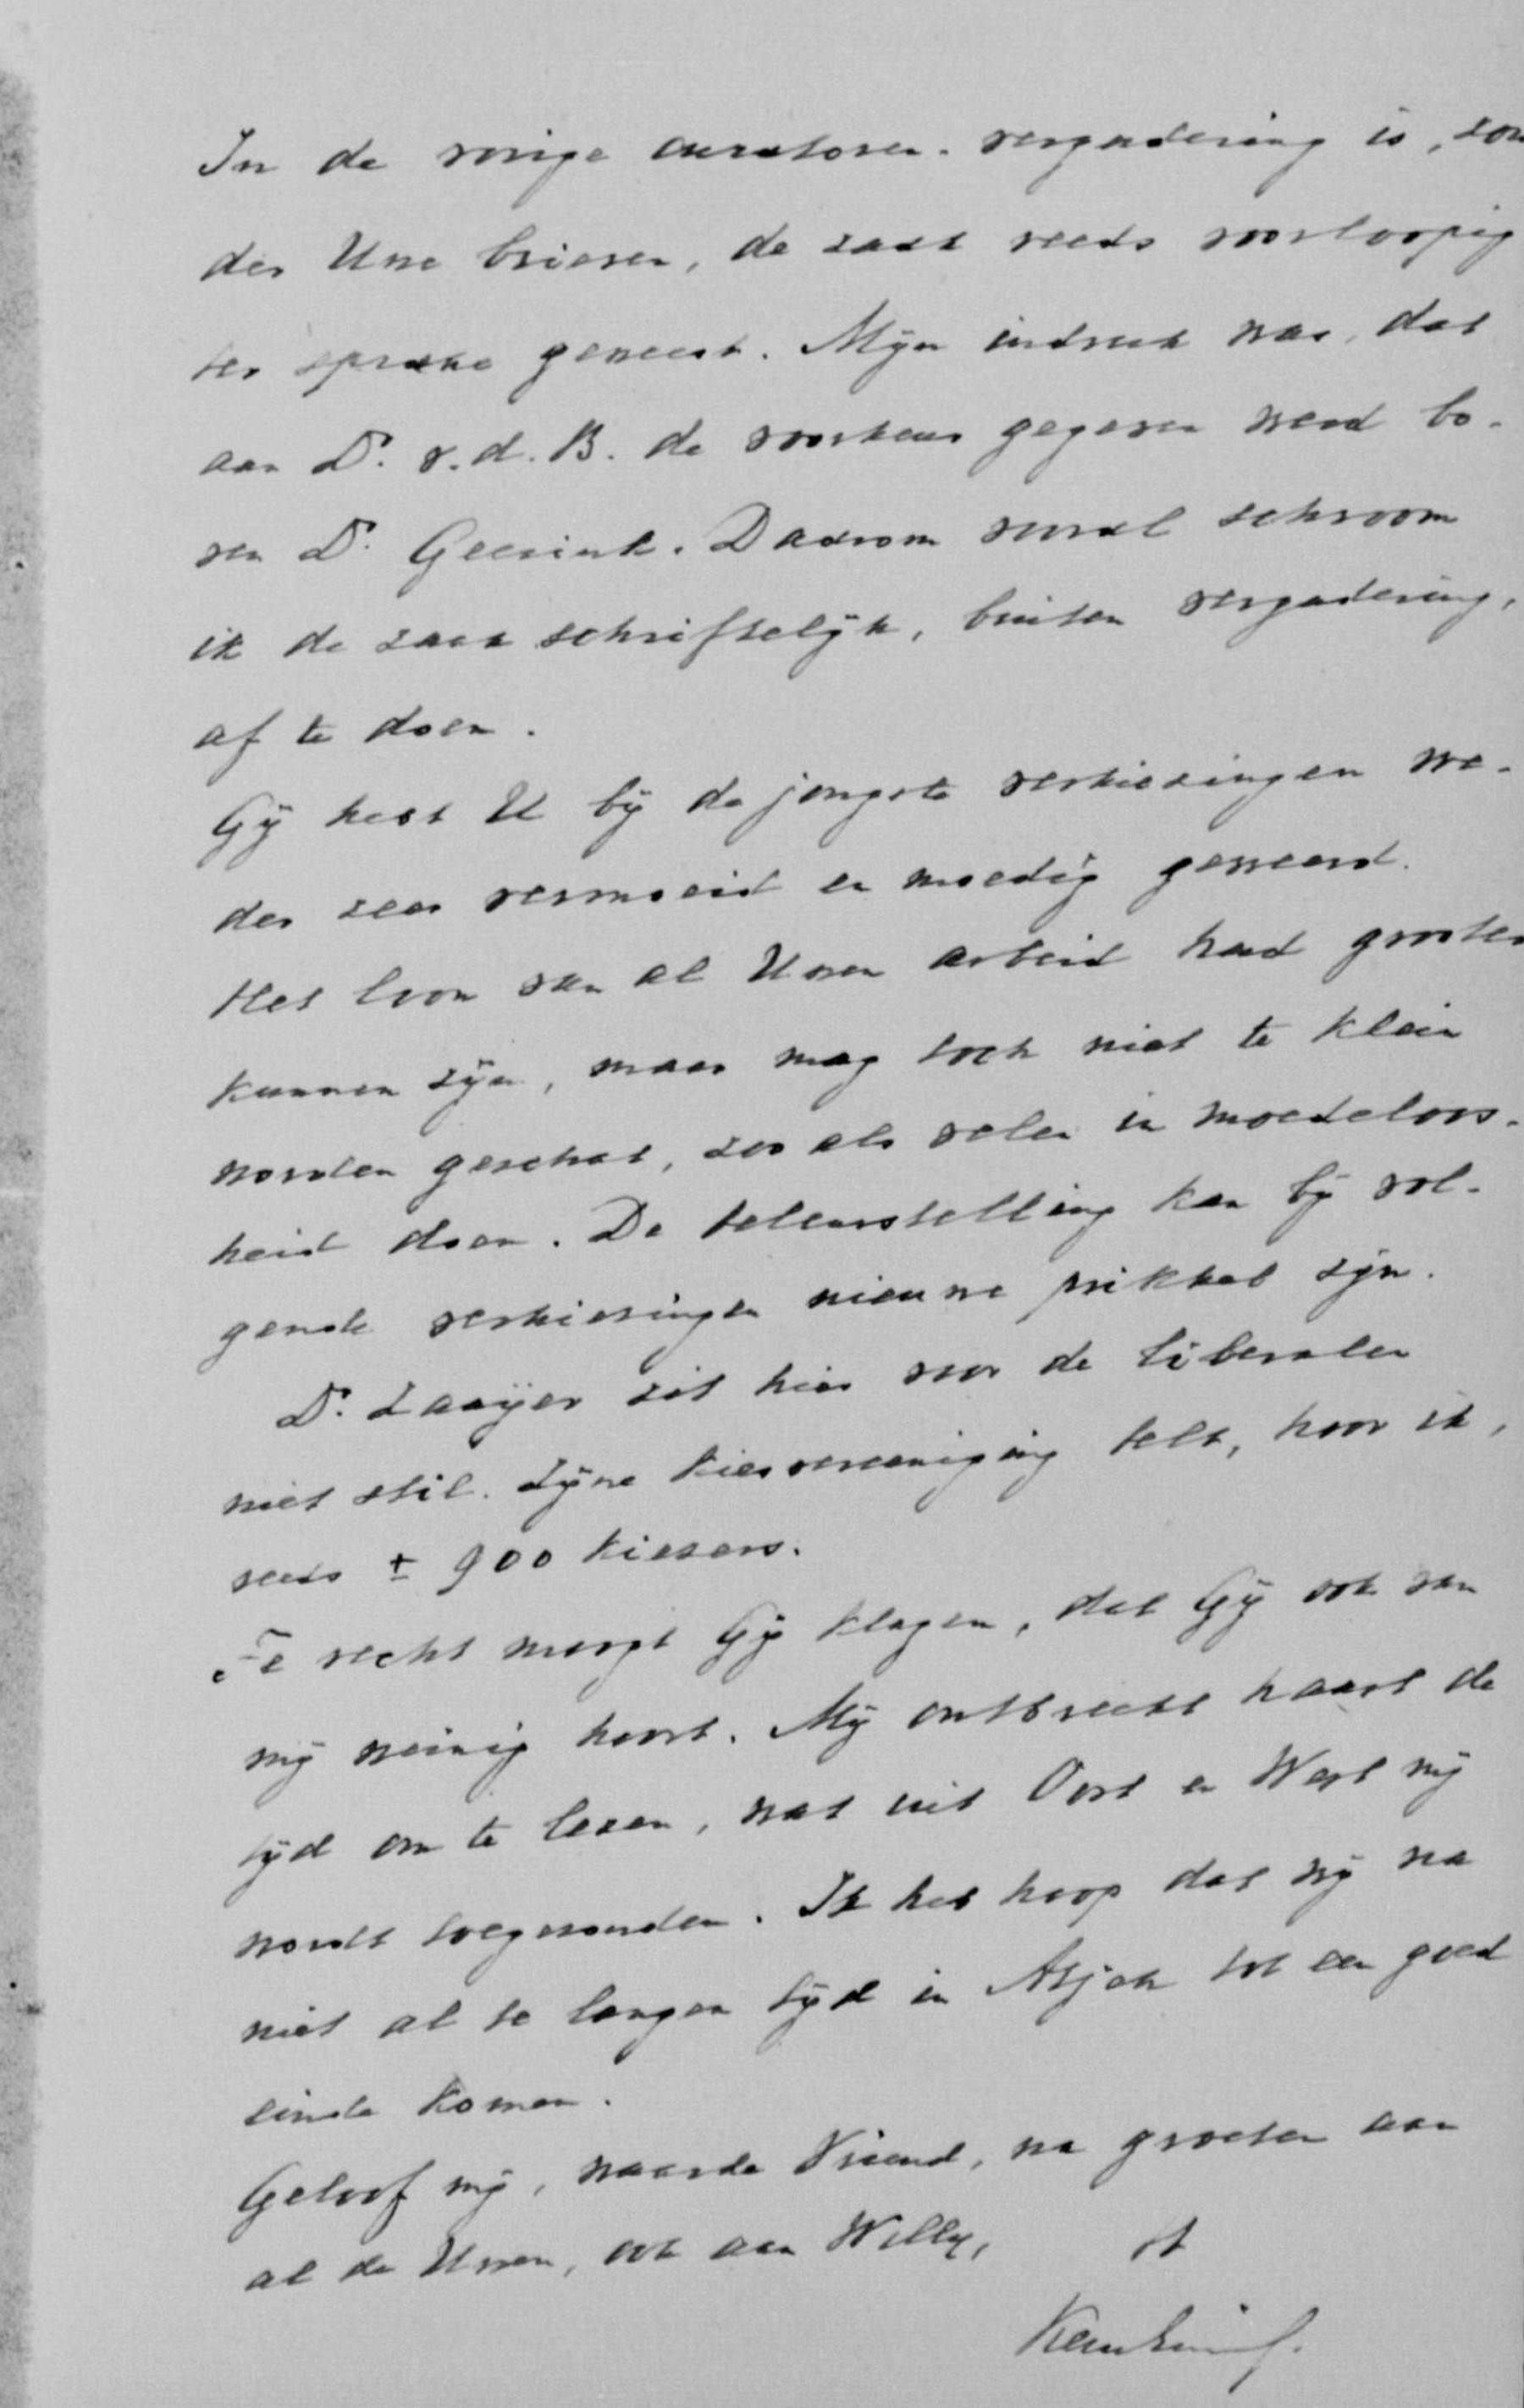 In de vorige curatoren-vergadering is, zon
der Uwe brieven, de zaak reeds voorloopig
ter sprake geweest. Mijn indruk was, dat
aan Dr. v. d. B. de voorkeur gegeven werd bo-
ven Dr. Geesink. Daarom vooral schroom
ik de zaak schriftelijk, buiten vergadering,
af te doen.
Gij hebt U bij de jongste verkiezingen we-
der zeer vermoeid en moedig geweerd.
Het loon van al Uwen arbeid had grooter
kunnen zijn, maar mag toch niet te klein
worden geschat, zoo als velen in moedeloos-
heid doen. De teleurstelling kan bij vol-
gende verkiezingen nieuwe prikkel zijn.
Dr. Zaayer zit hier voor de liberalen
niet stil. Zijne kiesvereeniging telt, hoor ik,
reeds ± 900 kiezers.
Te recht moogt Gij klagen, dat Gij ook van
mij weinig hoort. Mij ontbreekt haast de
tijd om te lezen, wat uit Oost en West mij
wordt toegezonden. Ik heb hoop dat wij na
niet al te langen tijd in Atjeh tot een goed
einde komen.
Geloof mij, waarde Vriend, na groeten aan
al de Uwen, ook aan Willy,
Keuchenius.